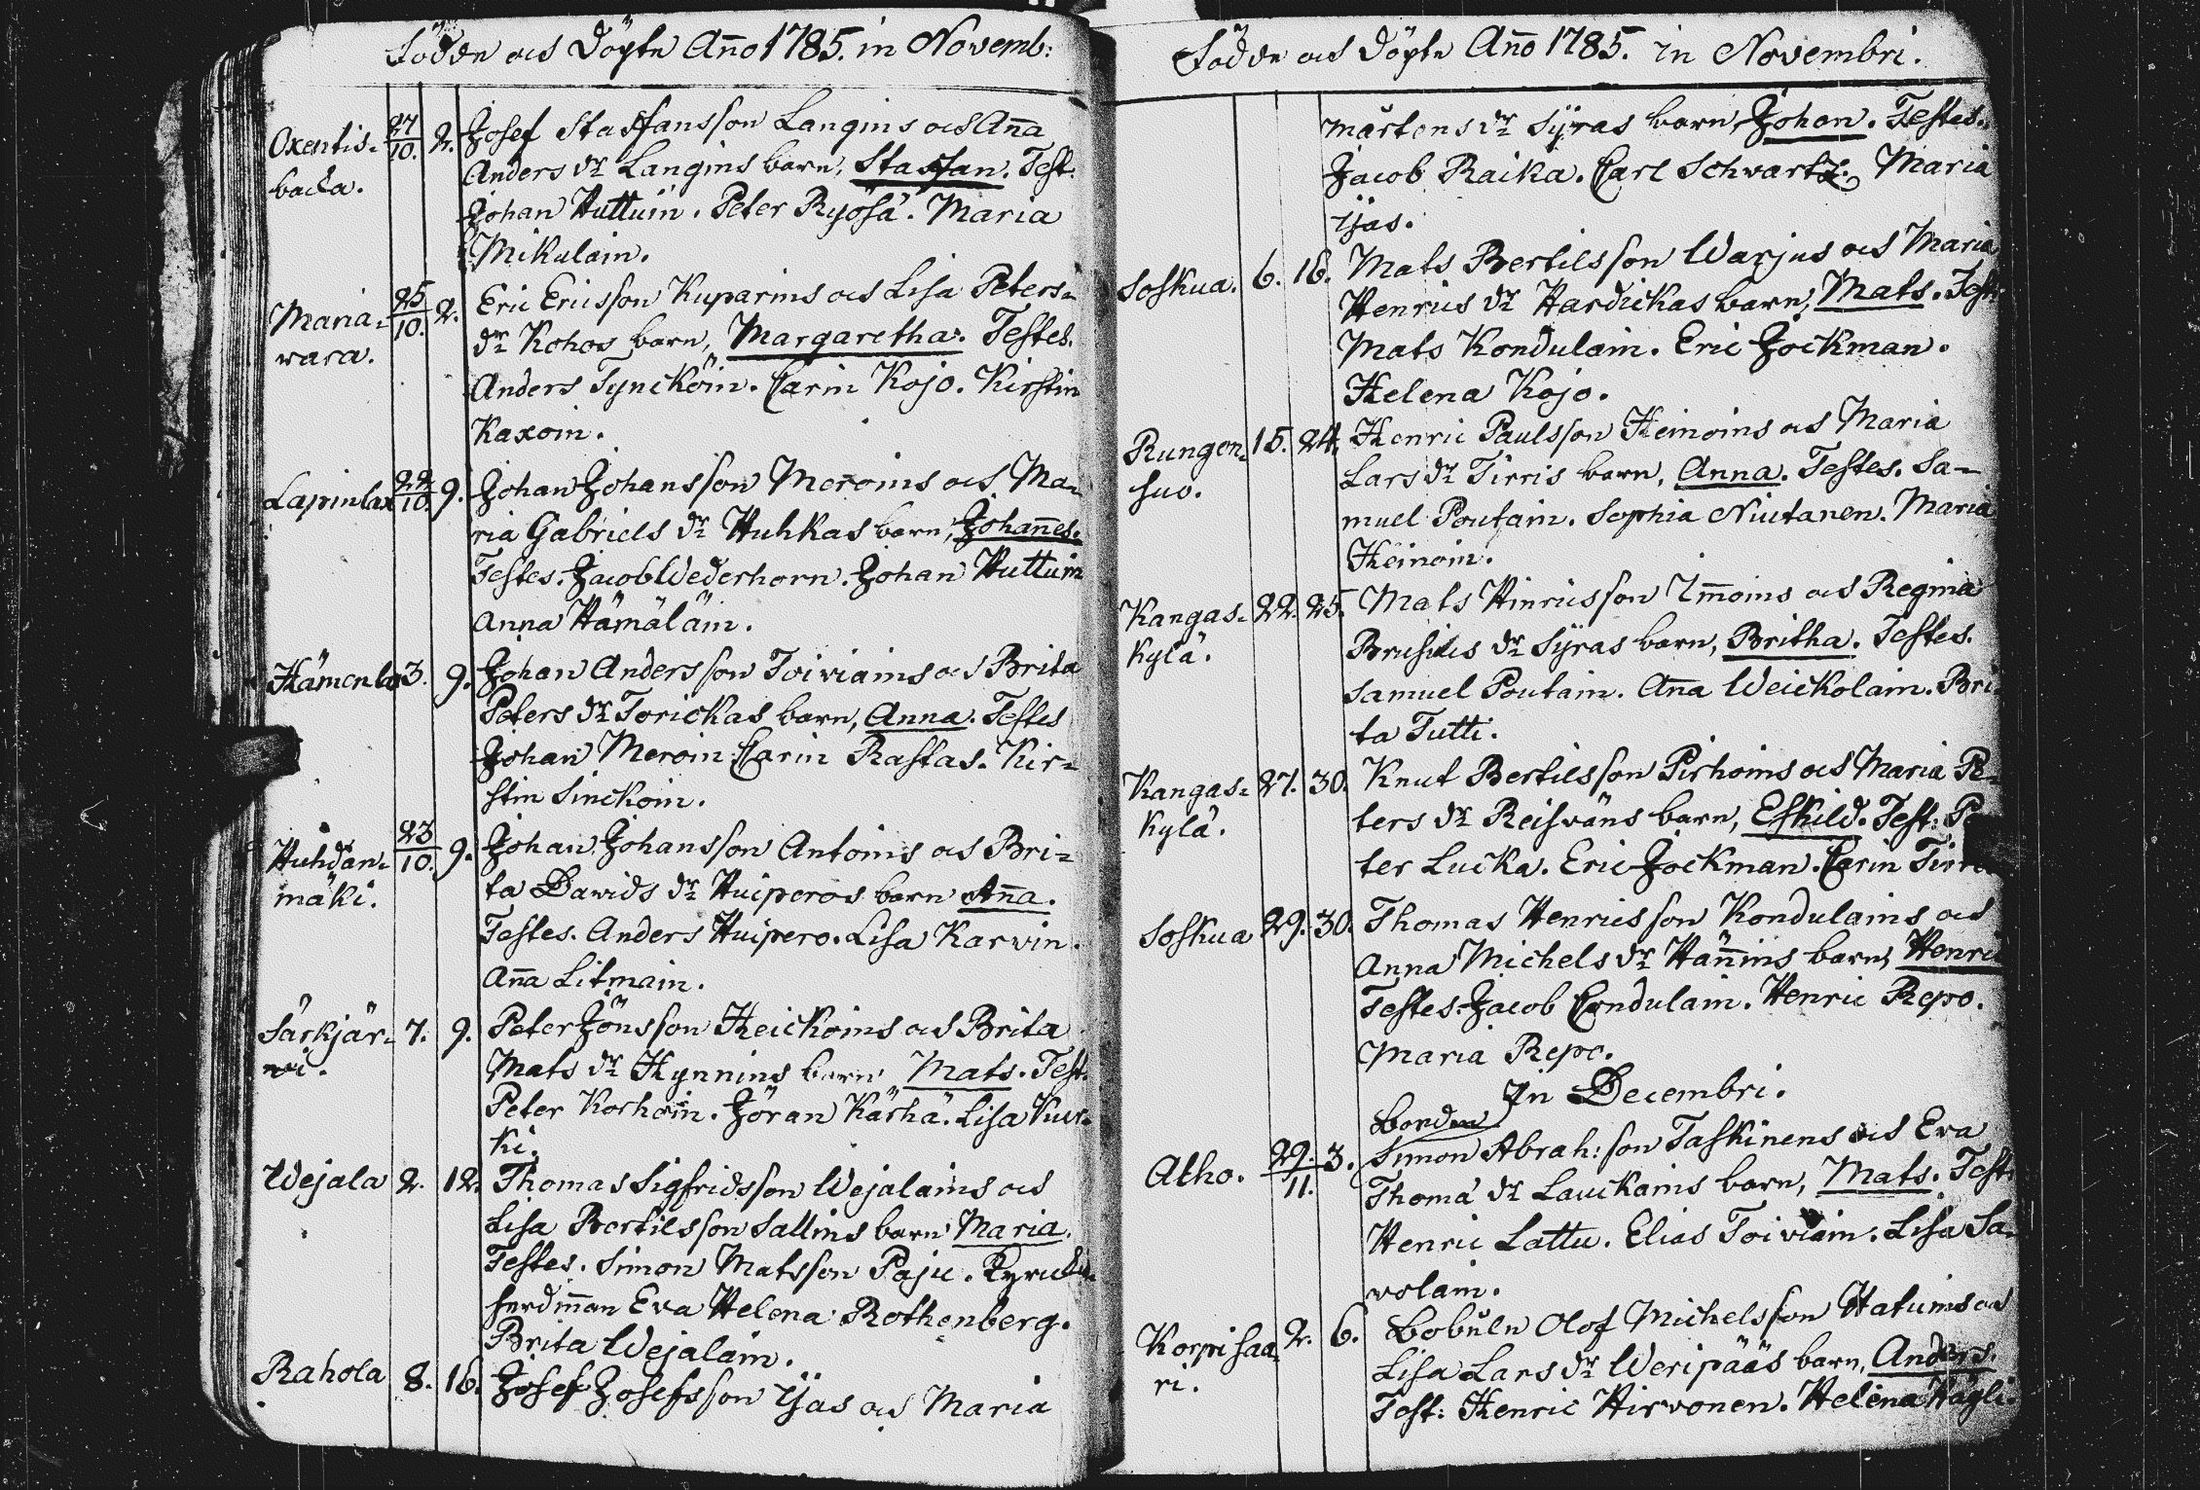 Födde och Döpte Año 1785. in Novemb:
Oxentis- 27/10. 2. Josef Staffansson Langins och Aña
backa. Anders dr Langins barn, Staffan. Test:
Johan Huttuin. Peter Ryösä. Maria
Mikulain.
Maria- 25/10. 2. Eric Ericsson Kuparins och Lisa Peters-
wara. dr Kohos barn, Margaretha. Testes.
Anders Tyncköin. Carin Kojo. Kirstin
Kaxoin.
Lapinlax 22/10. 9. Johan Johansson Meroins och Ma-
ria Gabriels dr Huhkas barn, Johañes.
Testes. Jacob Wederhorn. Johan Huttuin
Anna Hämäläin.
Hämenla 3. 9. Johan Andersson Toiviains och Brita
Peters dr Torickas barn, Anna. Testes
Johan Meroin. Carin Rastas. Kir-
stin Sinckoin.
Huhdan- 23/10. 9. Johan Johansson Antoins och Bri-
mäki. ta Davids dr Huiperos barn Aña.
Testes. Anders Huipero. Lisa Karvin.
Aña Litmain.
Särkjär- 7. 9. Peter Jönsson Heickoins och Brita
wi. Mats dr Hynnins barn Mats. Test.
Peter Korhoin. Jöran Kärhä. Lisa Kur-
ki.
Wejala 2. 12. Thomas Sigfridsson Wejalains och
Lisa Bertilsson Sallins barn Maria.
Testes. Simon Matsson Paju.
Eva Helena Rothenberg.
Brita Wejalain.
Rahola 8. 16. Josef Josefsson Ijas och Maria
Födde och Döpte Año 1785. in Novembri.
Mårtens dr Syras barn, Johan. Testes.
Jacob Raika. Carl Schwartz. Maria
Ijas.
Soskua. 6. 16. Mats Bertilsson Warjus och Maria
Henrics dr Hardickas barn, Mats. Test:
Mats Kondulain. Eric Jockman.
Helena Kojo.
Rungon- 15. 24. Henric Paulsson Heinoins och Maria
suo. Lars dr Tirris barn, Anna. Testes. Sa-
muel Poutain. Sophia Niutanen. Maria
Heinoin.
Kangas- 22. 25. Mats Hinricsson Im̃oins och Regina
kylä. Brusius dr Syras barn, Britha. Testes.
Samuel Poutain. Aña Weickolain. Bri-
ta Tutti.
Kangas- 27. 30. Knut Bertilsson Pirhoins och Maria Pe-
kylä. ters dr Reisväns barn, Eskild. Test: Pe
ter Lucka. Eric Jockman. Carin
Soskua 29. 30. Thomas Henricsson Kondulains och
Anna Michels dr Häñins barn, Henric
Testes. Jacob Condulain. Henric Repo.
Maria Repo.
In Decembri.
Bonden
Atho. 29./11. 3. Simon Abrah: son Taskinens och Eva
Thomæ dr Lauckains barn, Mats. Test:
Henric Lattu. Elias Toiviain. Lisa Sa-
volain.
Korpisaa- 2. 6. Bobüln Olof Michelsson Hatuins och
ri. Lisa Lars dr Weripääs barn, Anders.
Test: Henric Hirvonen. Helena Hägli.